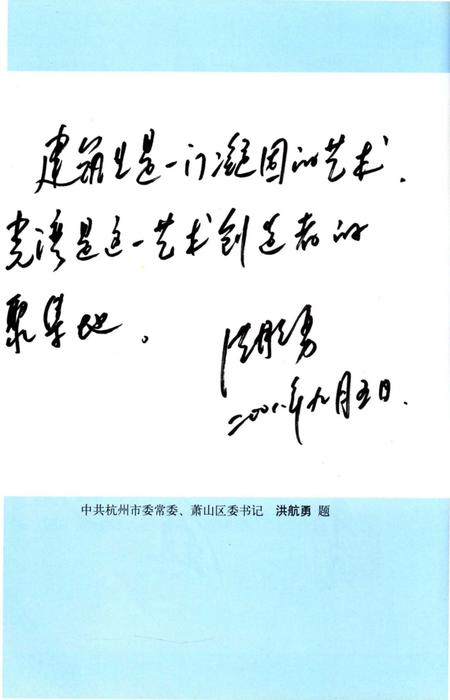 建筑业是一门凝固的艺术.
党湾是这一艺术创造者的
聚集地。
洪航勇
二〇〇八年九月五日.
中共杭州市委常委、萧山区委书记 洪航勇 题